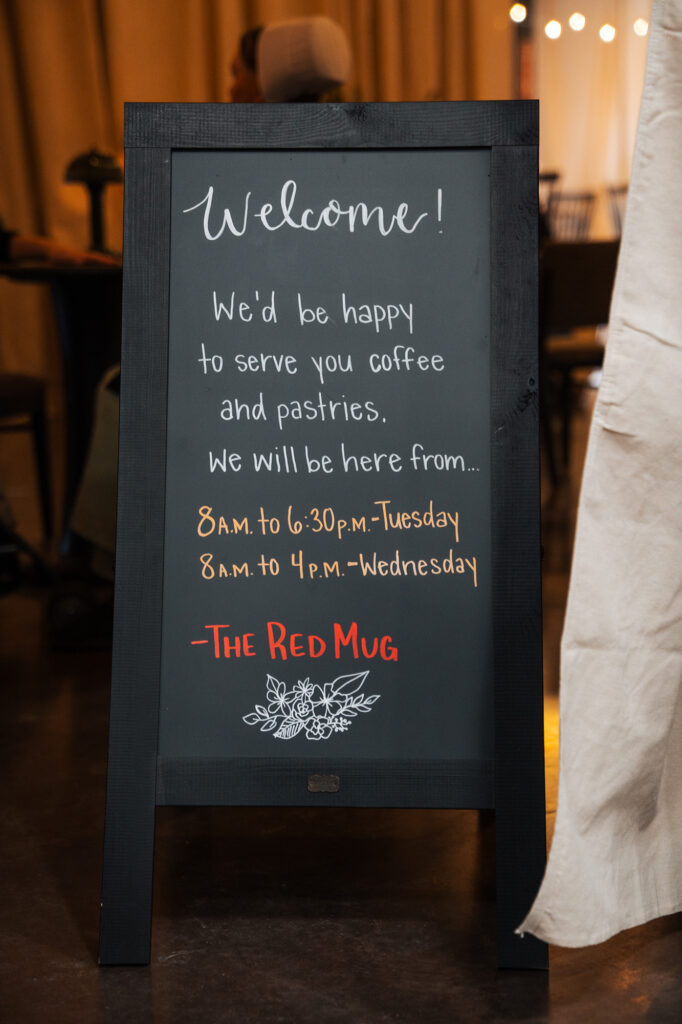 Welcome!
We'd be happy
to serve you coffee
and pastries.
We will be here from...
8A.M. to 6:30P.M.-Tuesday
8A.M. to 4P.M.-Wednesday
-THE RED MUG